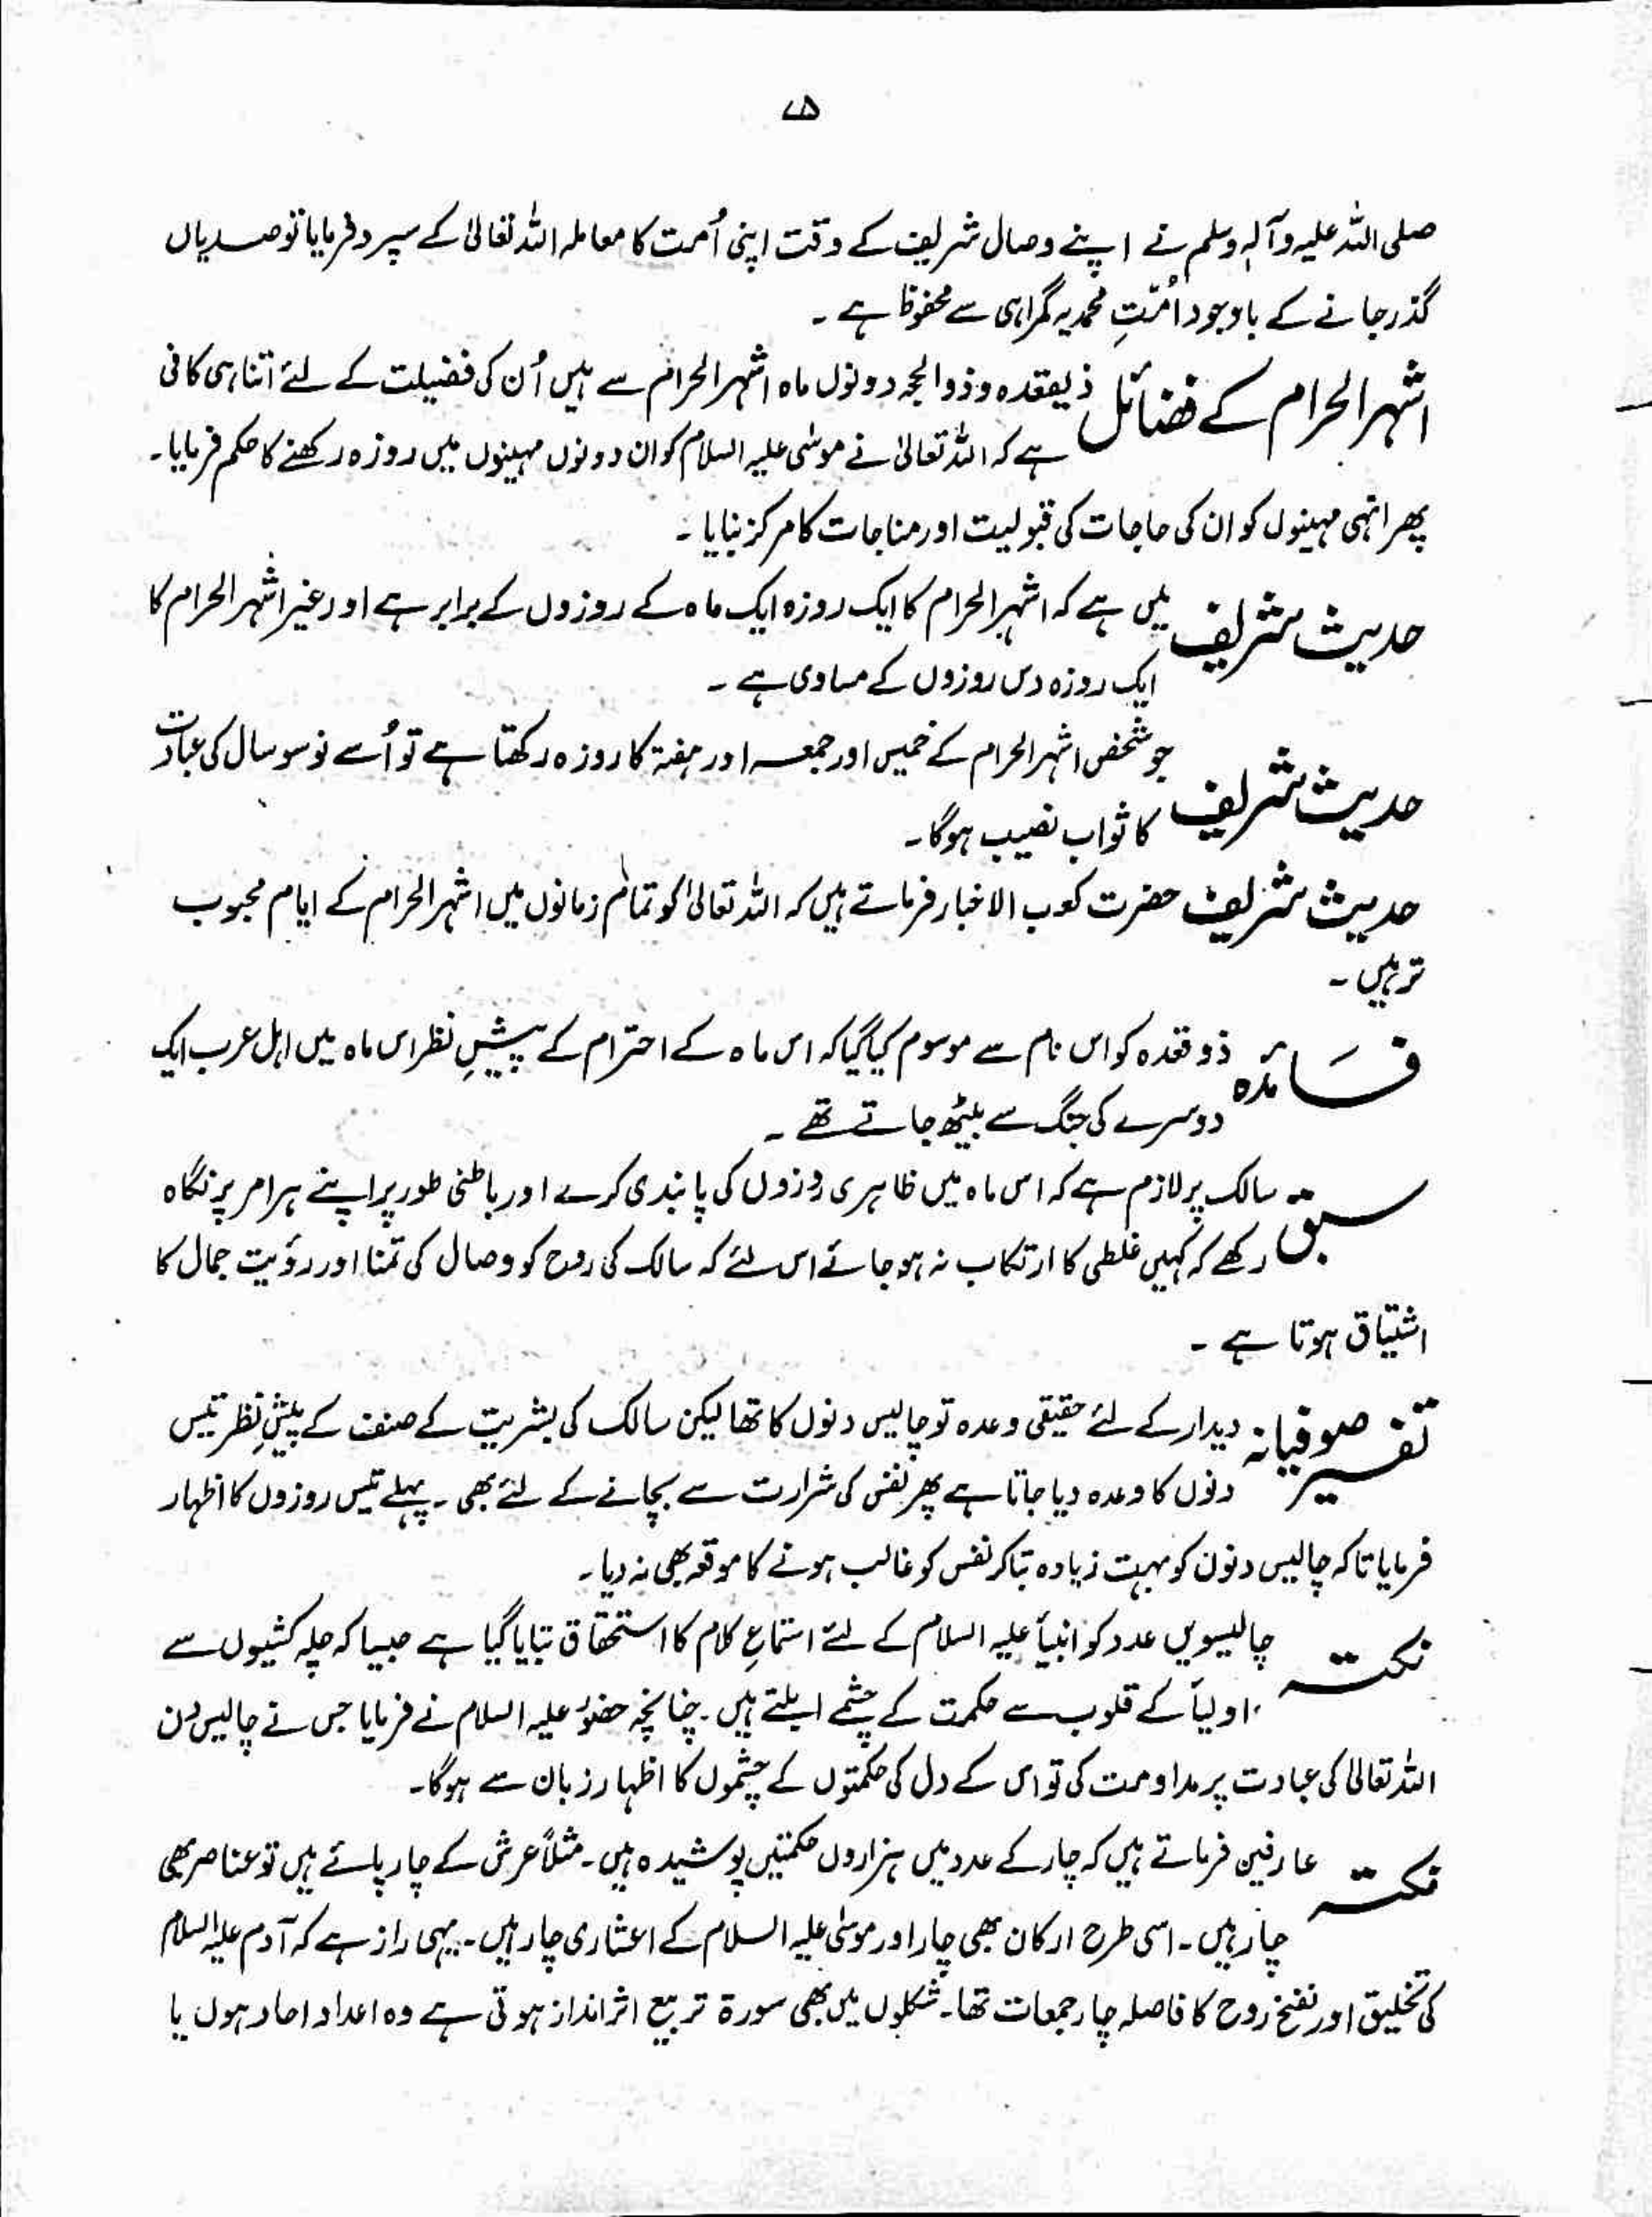 ۷۵
صلی اللہ علیہ وآلہٖ وسلم نے اپنے وصال شریف کے وقت اپنی اُمت کا معاملہ اللہ تعالیٰ کے سپرد فرمایا تو صدیاں
گذر جانے کے باوجود اُمّتِ محمدیہ گمراہی سے محفوظ ہے ۔
اشہر الحرام کے فضائل ذیقعدہ و ذوالحجہ دونوں ماہ اشہر الحرام سے ہیں اُن کی فضیلت کے لئے اتنا ہی کافی
ہے کہ اللہ تعالیٰ نے موسٰی علیہ السلام کو ان دونوں مہینوں میں روزہ رکھنے کا حکم فرمایا۔
پھر انہی مہینوں کو ان کی حاجات کی قبولیت اور مناجات کا مرکز بنایا ۔
حدیث شریف میں ہے کہ اشہر الحرام کا ایک روزہ ایک ماہ کے روزوں کے برابر ہے اور غیر اشہر الحرام کا
ایک روزہ دس روزوں کے مساوی ہے ۔
حدیث شریف جو شخص اشہر الحرام کے خمیس اور جمعہ اور ہفتہ کا روزہ رکھتا ہے تو اُسے نو سو سال کی عبادت
کا ثواب نصیب ہوگا۔
حدیث شریف حضرت کعب الاخبار فرماتے ہیں کہ اللہ تعالیٰ کو تمام زمانوں میں اشہر الحرام کے ایام محبوب
تر ہیں ۔
فائدہ ذوقعدہ کو اس نام سے موسوم کیا گیا کہ اس ماہ کے احترام کے پیشِ نظر اس ماہ میں اہل عرب ایک
دوسرے کی جنگ سے بیٹھ جاتے تھے ۔
سبق سالک پر لازم ہے کہ اس ماہ میں ظاہری روزوں کی پابندی کرے اور باطنی طور پر اپنے ہر امر پر نگاہ
رکھے کہ کہیں غلطی کا ارتکاب نہ ہو جائے اس لئے کہ سالک کی روح کو وصال کی تمنا اور رؤیت جمال کا
اشتیاق ہوتا ہے ۔
تفسیر صوفیانہ دیدار کے لئے حقیقی وعدہ تو چالیس دنوں کا تھا لیکن سالک کی بشریت کے صنف کے پیشِ نظر تیس
دنوں کا وعدہ دیا جاتا ہے پھر نفس کی شرارت سے بچانے کے لئے بھی ۔ پہلے تیس روزوں کا اظہار
فرمایا تاکہ چالیس دنون کو بہت زیادہ بتا کر نفس کو غالب ہونے کا موقعہ بھی نہ دیا ۔
نکتہ چالیسویں عدد کو انبیأ علیہ السلام کے لئے استماعِ کلام کا استحقاق بتایا گیا ہے جیسا کہ چلہ کشیوں سے
اولیأ کے قلوب سے حکمت کے چشمے ابلتے ہیں ۔ چنانچہ حضورؐ علیہ السلام نے فرمایا جس نے چالیس دن
اللہ تعالیٰ کی عبادت پر مداومت کی تو اس کے دل کی حکمتوں کے چشموں کا اظہار زبان سے ہوگا۔
نکتہ عارفین فرماتے ہیں کہ چار کے عدد میں ہزاروں حکمتیں پوشیدہ ہیں ۔ مثلاً عرش کے چار پائے ہیں تو عناصر بھی
چار ہیں ۔ اسی طرح ارکان بھی چار اور موسٰی علیہ السلام کے اعشاری چار ہیں ۔ یہی راز ہے کہ آدم علیہ السلام
کی تخلیق اور نفخِ روح کا فاصلہ چار جمعات تھا۔ شکلوں میں بھی سورۃ تربیع اثر انداز ہوتی ہے وہ اعداد احاد ہوں یا